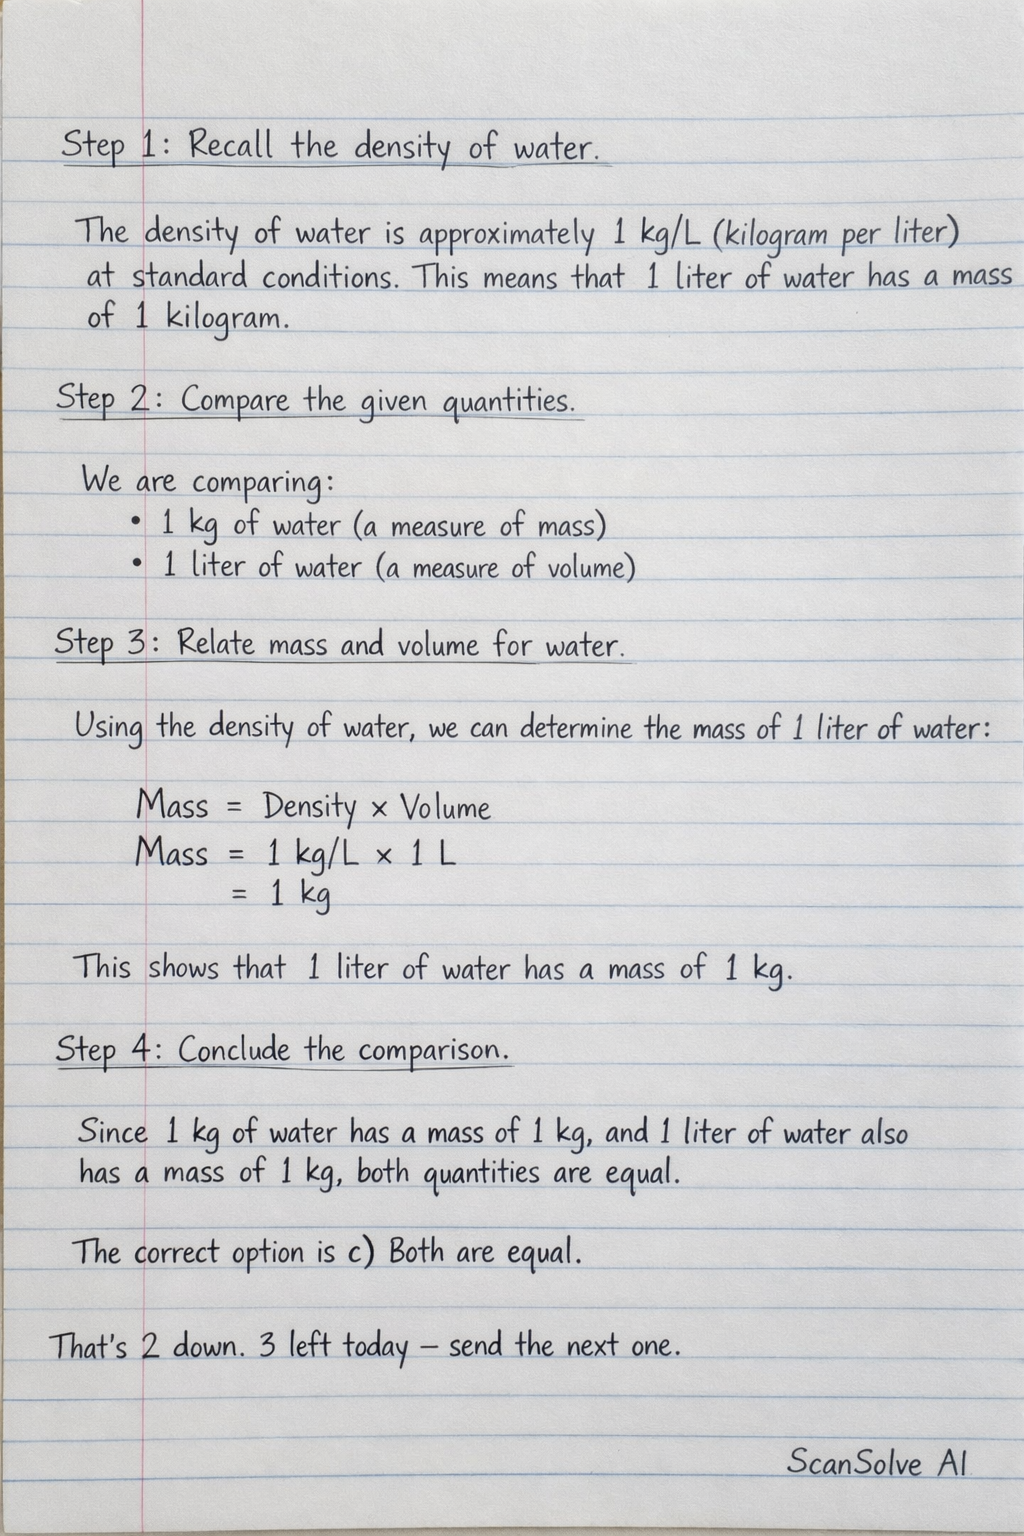 Step 1: Recall the density of water.
The density of water is approximately 1 kg/L (kilogram per liter)
at standard conditions. This means that 1 liter of water has a mass
of 1 kilogram.
Step 2: Compare the given quantities.
We are comparing:
• 1 kg of water (a measure of mass)
• 1 liter of water (a measure of volume)
Step 3: Relate mass and volume for water.
Using the density of water, we can determine the mass of 1 liter of water:
Mass = Density × Volume
Mass = 1 kg/L × 1 L
= 1 kg
This shows that 1 liter of water has a mass of 1 kg.
Step 4: Conclude the comparison.
Since 1 kg of water has a mass of 1 kg, and 1 liter of water also
has a mass of 1 kg, both quantities are equal.
The correct option is c) Both are equal.
That's 2 down. 3 left today – send the next one.
ScanSolve AI